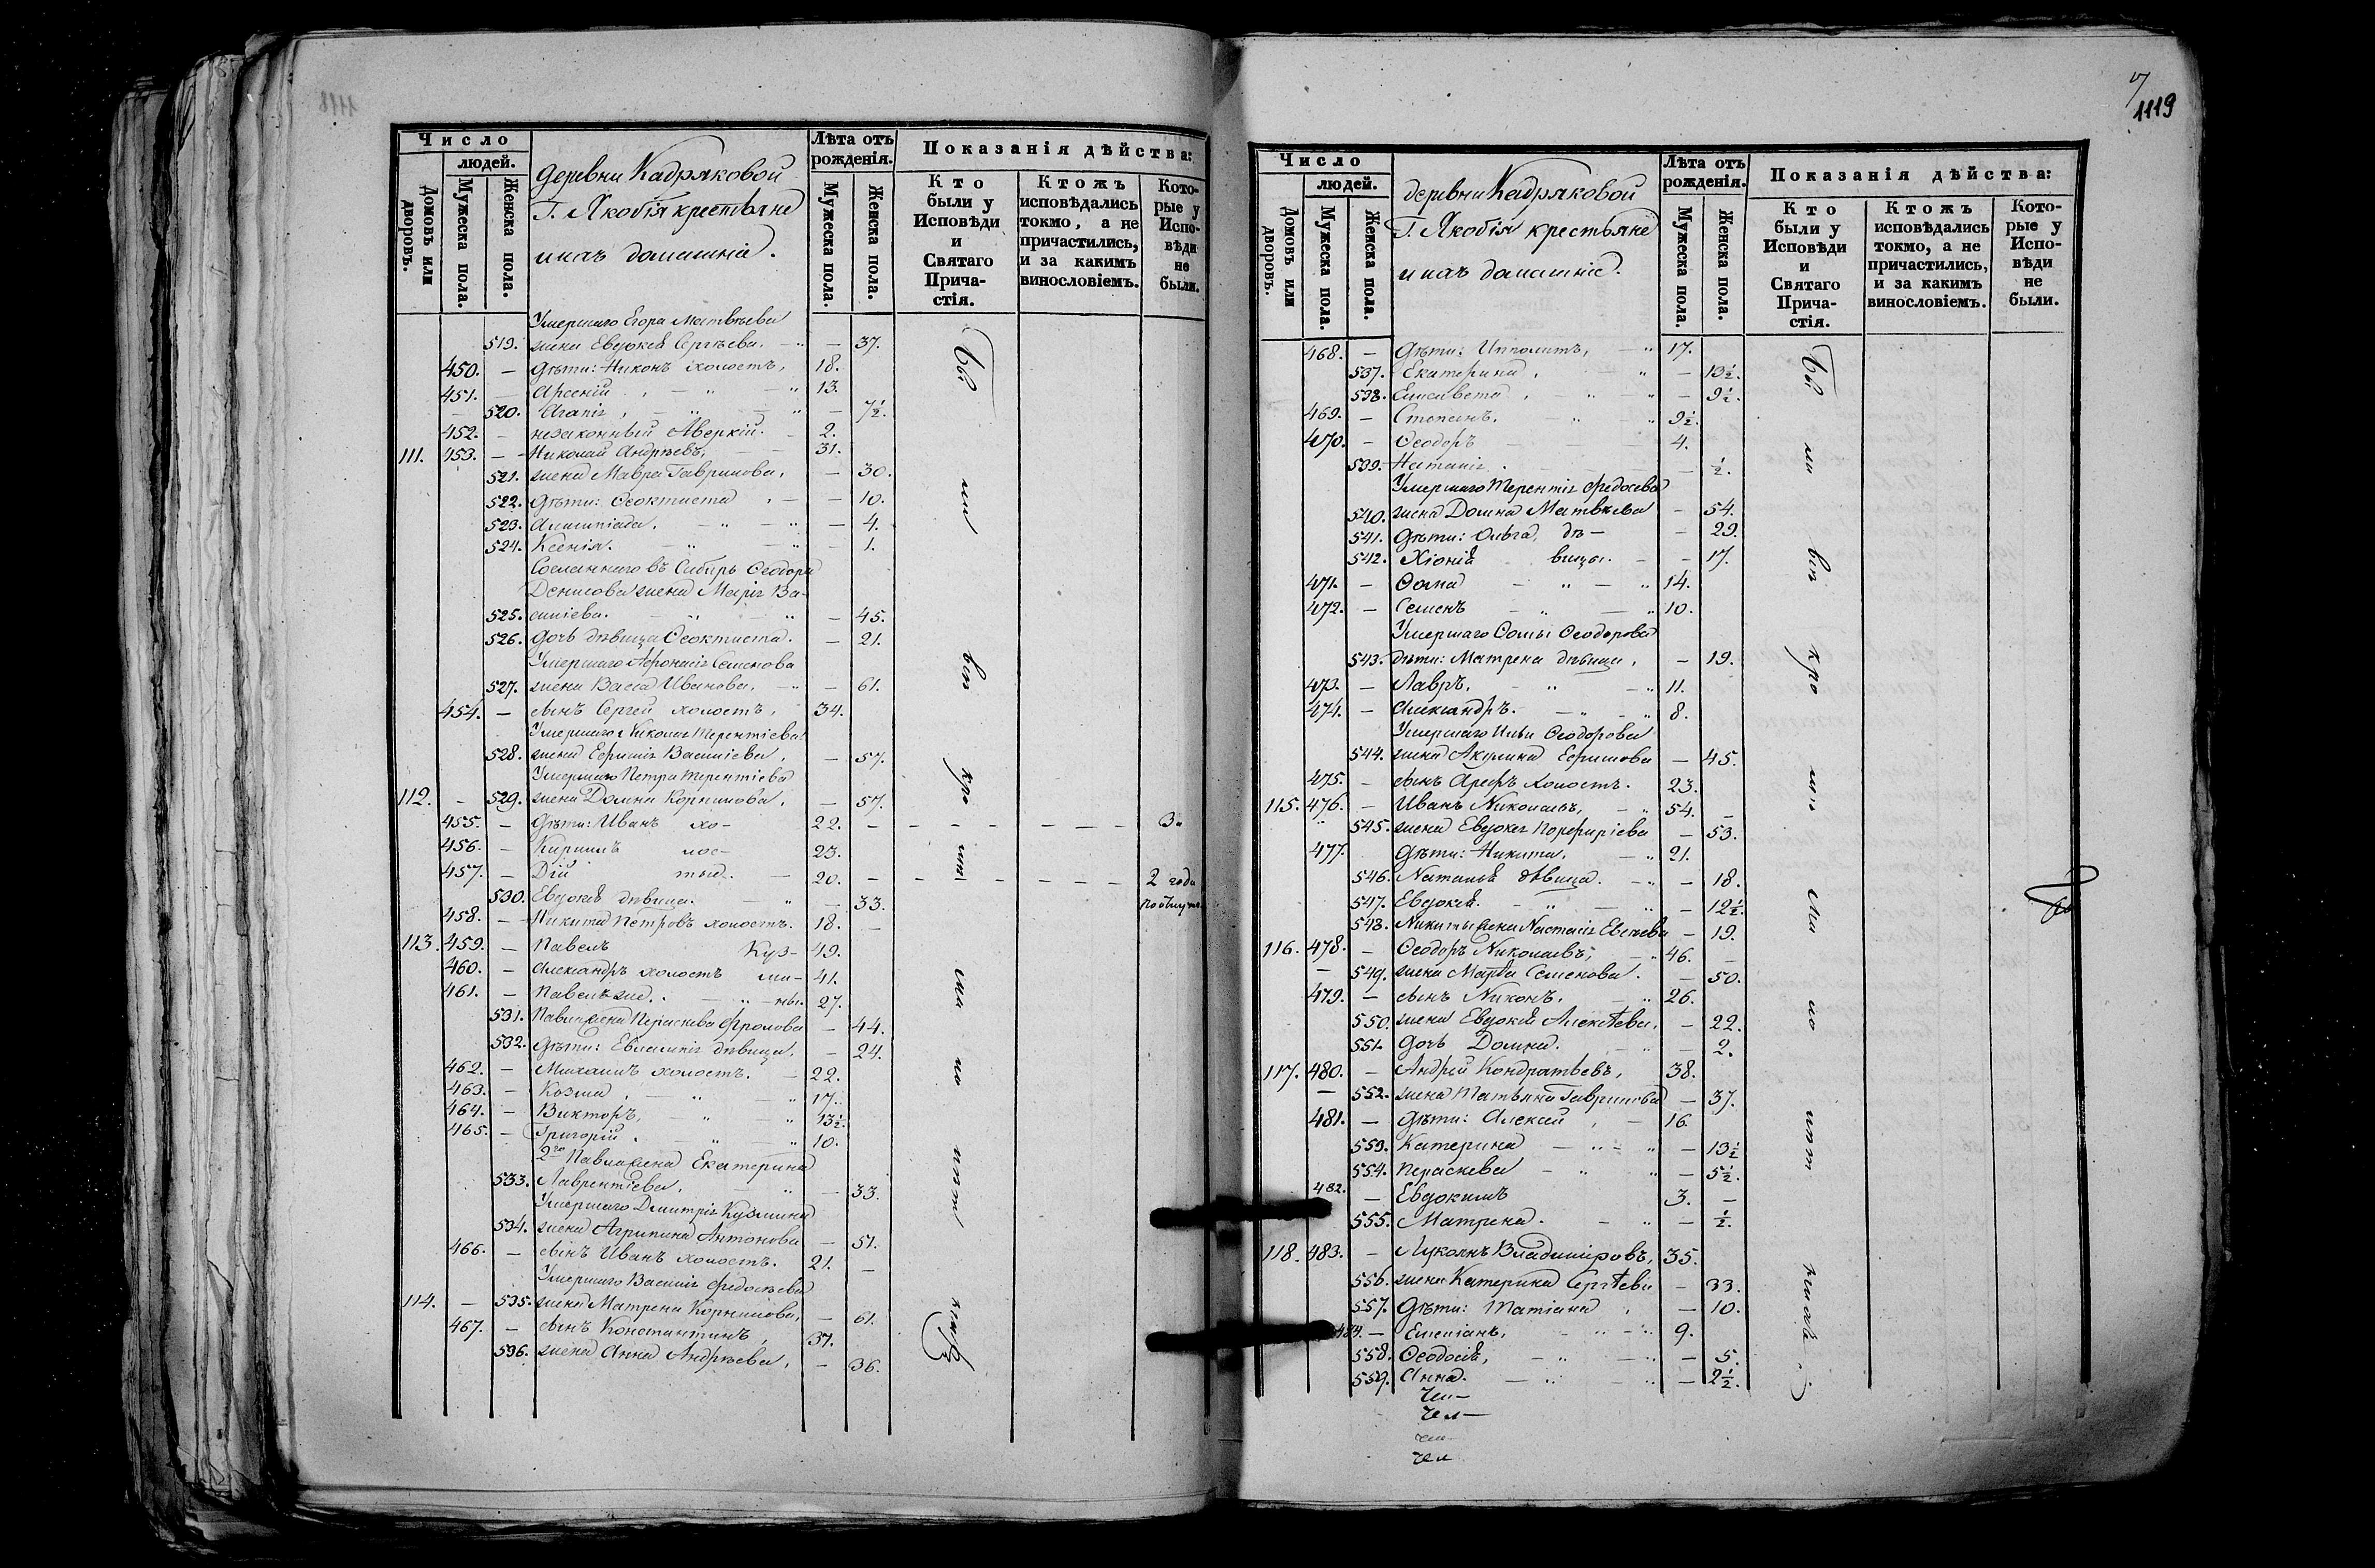 Число
людей.
Домовъ или дворовъ.
Мужеска пола.
Женска пола.
деревни Кадряковой
Г. Якобія крестьяне
и ихъ домашніе.
Лѣта отъ рожденія.
Мужеска пола.
Женска пола.
Показанія дѣйства:
Кто были у Исповѣди и Святаго Причастія.
Ктожъ исповѣдались токмо, а не причастились, и за какимъ винословіемъ.
Которые у Исповѣди не были.
Умершаго Егора Матвѣева
519. жена Евдокія Сергѣева. — 37.
450. — дѣти: Никонъ холостъ, 18.
451. — Арсеній, 13.
— 520. Агапія, — 7½.
452. — незаконный Аверкій. 2.
111. 453. — Николай Андреевъ, 31.
521. жена Мавра Гаврилова, — 30.
522. дѣти: Ѳеоктиста, — 10.
523. Олимпіада, — 4.
524. Ксенія. — 1.
Сосланнаго въ Сибирь Ѳеодора
Денисова жена Марія Ва-
525. силіева. — 45.
526. дочь дѣвица Ѳеоктиста. — 21.
Умершаго Афонасія Семенова
527. жена Васса Иванова. — 61.
454. — сынъ Сергей холостъ, 34.
Умершаго Николая Терентіева
528. жена Ефимія Василіева, — 57.
Умершаго Петра Терентіева
112. — 529. жена Домна Корнилова, — 57.
455. — дѣти: Иванъ хо- 22. — — — — — — 3"
456. — Кирилъ лос- 23.
457. — Дій тые. 20. — — — — — — 2 года
530. Евдокія дѣвица. — 33.
458. — Никита Петровъ холостъ. 18. —
113. 459. — Павелъ Куз- 49.
460. — Александръ холостъ ми- 41.
461. — Павелъ же. ны. 27.
531. Павла жена Параскева Фролова — 44.
532. дѣти: Евлампія дѣвица, — 24.
462. — Михаилъ холостъ. 22.
463. — Козма, 17.
464. — Викторъ, 13½.
465. — Григорій. 10.
2го Павла жена Екатерина
533. Лаврентіева. — 33.
Умершаго Дмитрія Кузмина
534. жена Агрипина Антонова — 51.
466. — сынъ Иванъ холостъ. 21. —
Умершаго Василія Федосѣева
114. — 535. жена Матрена Корнилова, — 61.
467. — сынъ Константинъ, 37.
536. жена Анна Андреева, — 36.
Бы ли всѣ кро мѣ ма ло
1119
Число
людей.
Домовъ или дворовъ.
Мужеска пола.
Женска пола.
деревни Кадряковой
Г. Якобія крестьяне
и ихъ домашніе.
Лѣта отъ рожденія.
Мужеска пола.
Женска пола.
Показанія дѣйства:
Кто были у Исповѣди и Святаго Причастія.
Ктожъ исповѣдались токмо, а не причастились, и за какимъ винословіемъ.
Которые у Исповѣди не были.
468. — дѣти: Ипполитъ, 17.
537. Екатерина, — 13½.
538. Елисавета, — 9½.
469. — Степанъ. 9½.
470. — Ѳеодоръ 4.
539. Наталія. — ½.
Умершаго Терентія Федосѣева
540. жена Домна Матвѣева — 54.
541. дѣти: Ольга, дѣ- — 29.
542. Хіонія вицы. — 17.
471. — Ѳома 14.
472. — Семенъ 10.
Умершаго Ѳомы Ѳеодорова
543. дѣти: Матрена дѣвица, — 19.
473. — Лавръ. 11.
474. — Александръ. 8.
Умершаго Ильи Ѳеодорова
544. жена Акулина Ефимова — 45.
475. — сынъ Арефъ холостъ. 23.
115. 476. — Иванъ Николаевъ, 54. —
545. жена Евдокія Порфиріева — 53.
477. дѣти: Никита. 21.
546. Наталья дѣвица. — 18.
547. Евдокія. — 12½.
548. Никиты жена Настасія Евсѣева — 19.
116. 478. — Ѳеодоръ Николаевъ, 46. —
— 549. жена Марѳа Семенова. — 50.
479. — сынъ Никонъ. 26.
550. жена Евдокія Алексѣева, — 22.
551. дочь Домна. — 2.
117. 480. — Андрей Кондратьевъ, 38.
— 552. жена Татьяна Гаврилова — 37.
481. — дѣти: Алексей, 16
553. Катерина — 13½
554. Параскева — 5½.
482. — Евдокимъ 3. —
555. Матрена. — ½.
118. 483. — Лукоянъ Владиміровъ, 35.
556. жена Катерина Сергѣева — 33.
557. дѣти: Татіана, — 10.
484. — Емеліанъ, 9.
558. Ѳеодосія, — 5.
559. Анна. — 2½.
Чел—
Чел—
чел
чел
Бы ли всѣ кро мѣ ма ло